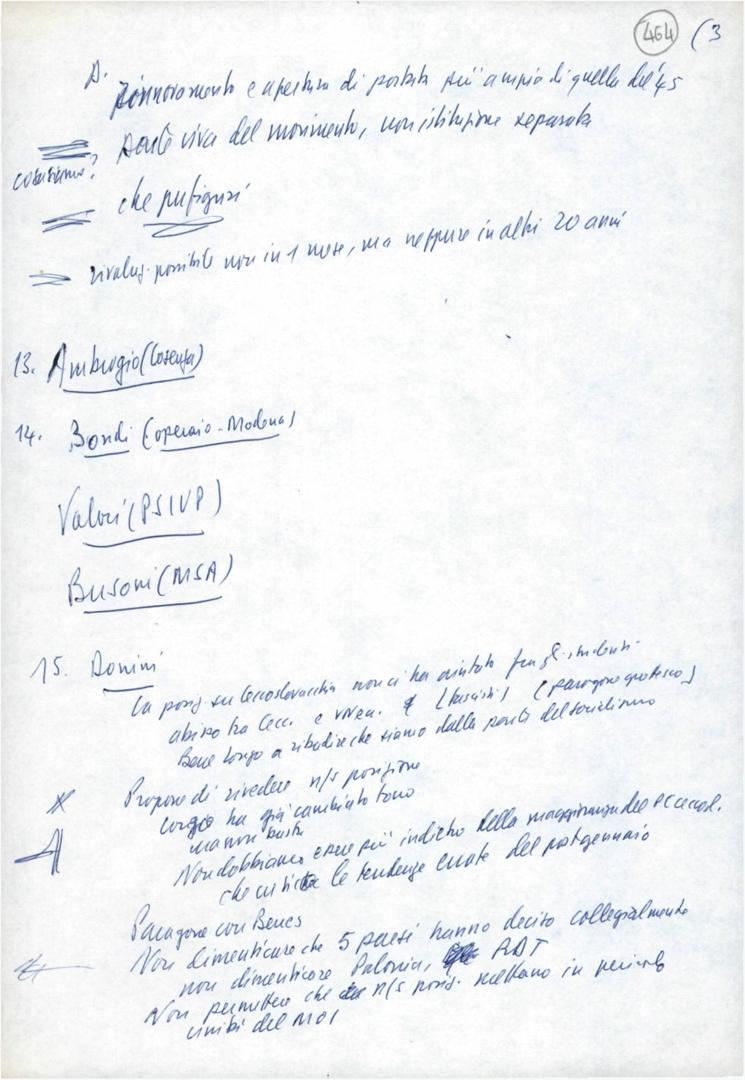 464 (3
D. rinnovamento e apertura di portata più ampia di quella del '45
parte viva del movimento, non istituzione separata
?
che prefiguri
rivoluz. possibile non in 1 mese, ma neppure in altri 20 anni
13. Ambrogio (Cosenza)
14. Bondi (operaio - Modena)
Valori (PSIUP)
Busoni (MSA)
15. Donini
La posiz. su Cecoslovacchia non ci ha aiutato fra gli studenti
abisso tra Cecc. e (fascisti) (paragone grottesco)
Bene Longo a ribadire che siamo dalla parte del socialismo
Propone di rivedere n/s posizione
Longo ha già cambiato tono
ma non basta
Non dobbiamo essere più indietro della maggioranza del PC cecosl.
che critica le tendenze errate del postgennaio
Paragone con Benes
Non dimenticare che 5 paesi hanno deciso collegialmente
non dimenticare Polonia, RDT
Non permettere che n/s posiz. mettano in pericolo
unità del MOI